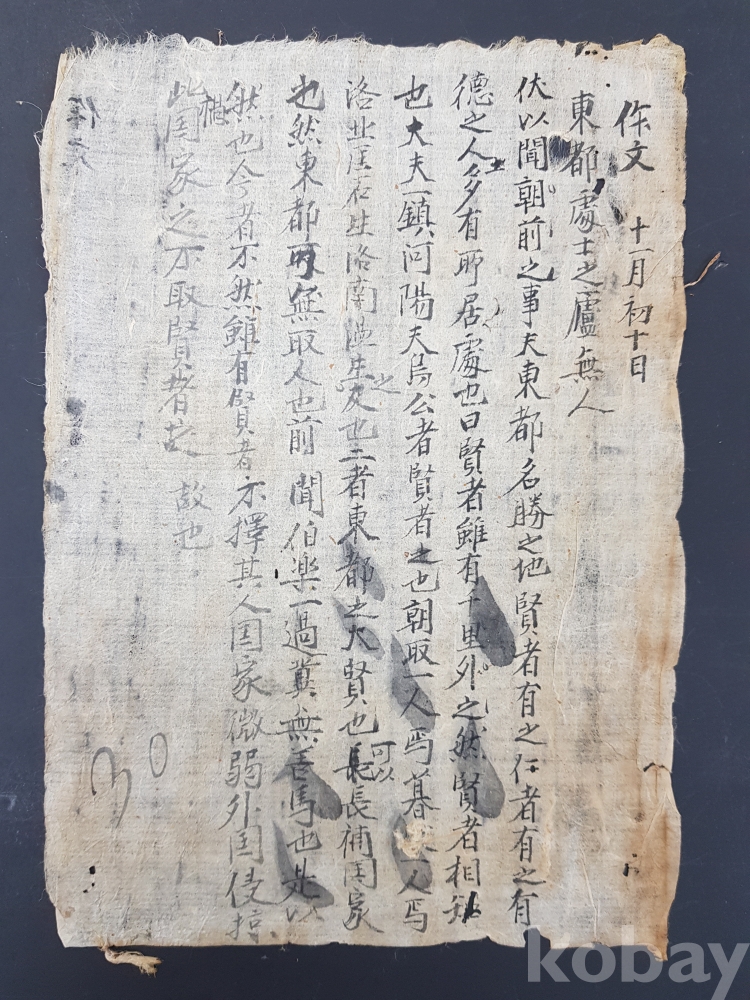 作文 十一月初十日
東都處士之廬無人
伏以聞朝前之事夫東都名勝之地賢者有之仁者有之有
德之人多有所居處也曰賢者雖有千里外之然賢者相
也大夫一鎮河陽大夫烏公者賢者之也朝取一人焉暮一人焉
洛北石生洛南溫生之也二者東都之大賢也可以長補国家
也然東都無取人也前聞伯楽一過冀無善馬也此以
然也今者不然雖有賢者不擇其人国家微弱外国侵掠
此国家之不取賢者之故也
作文
30
kobay